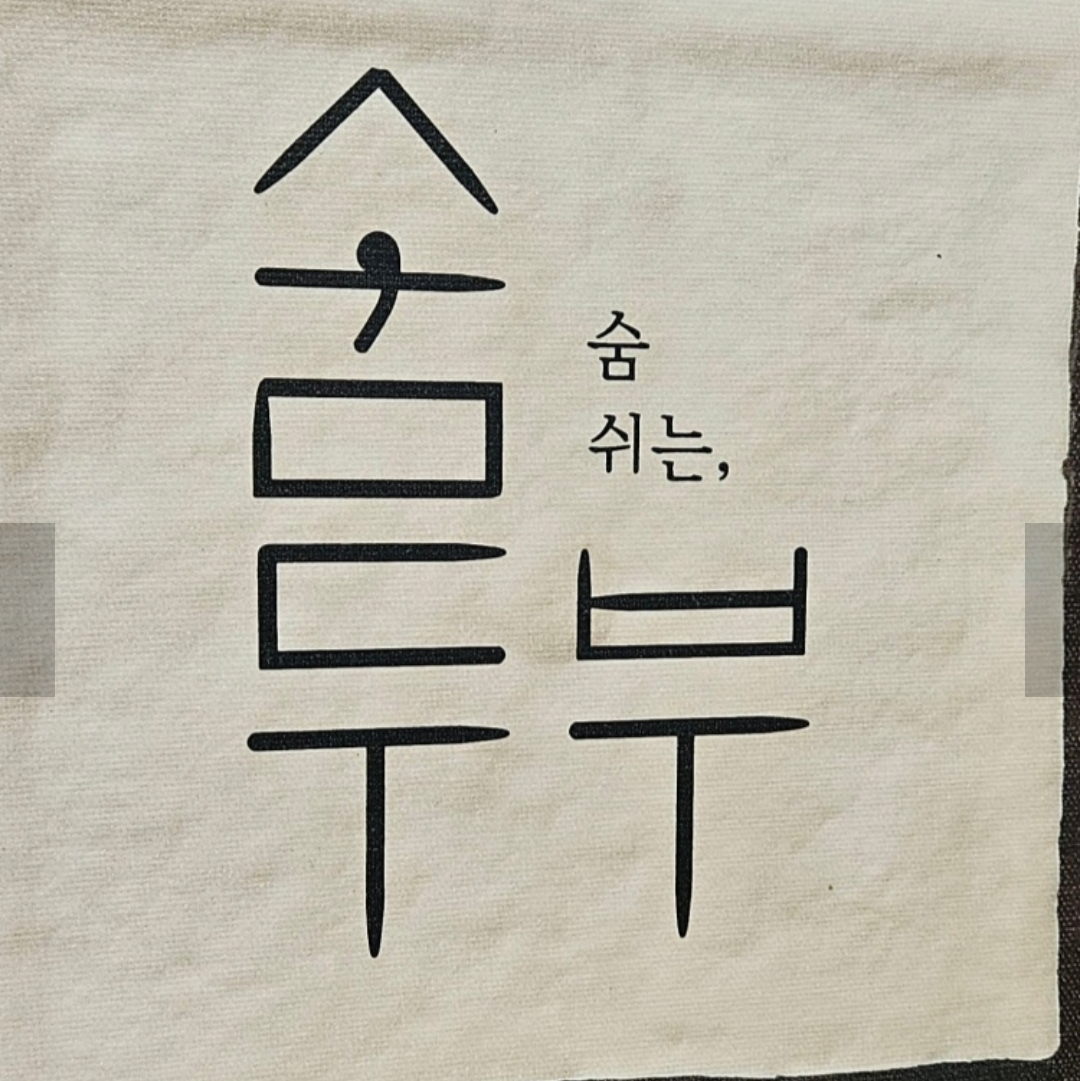 숨
숨
쉬는,
두부